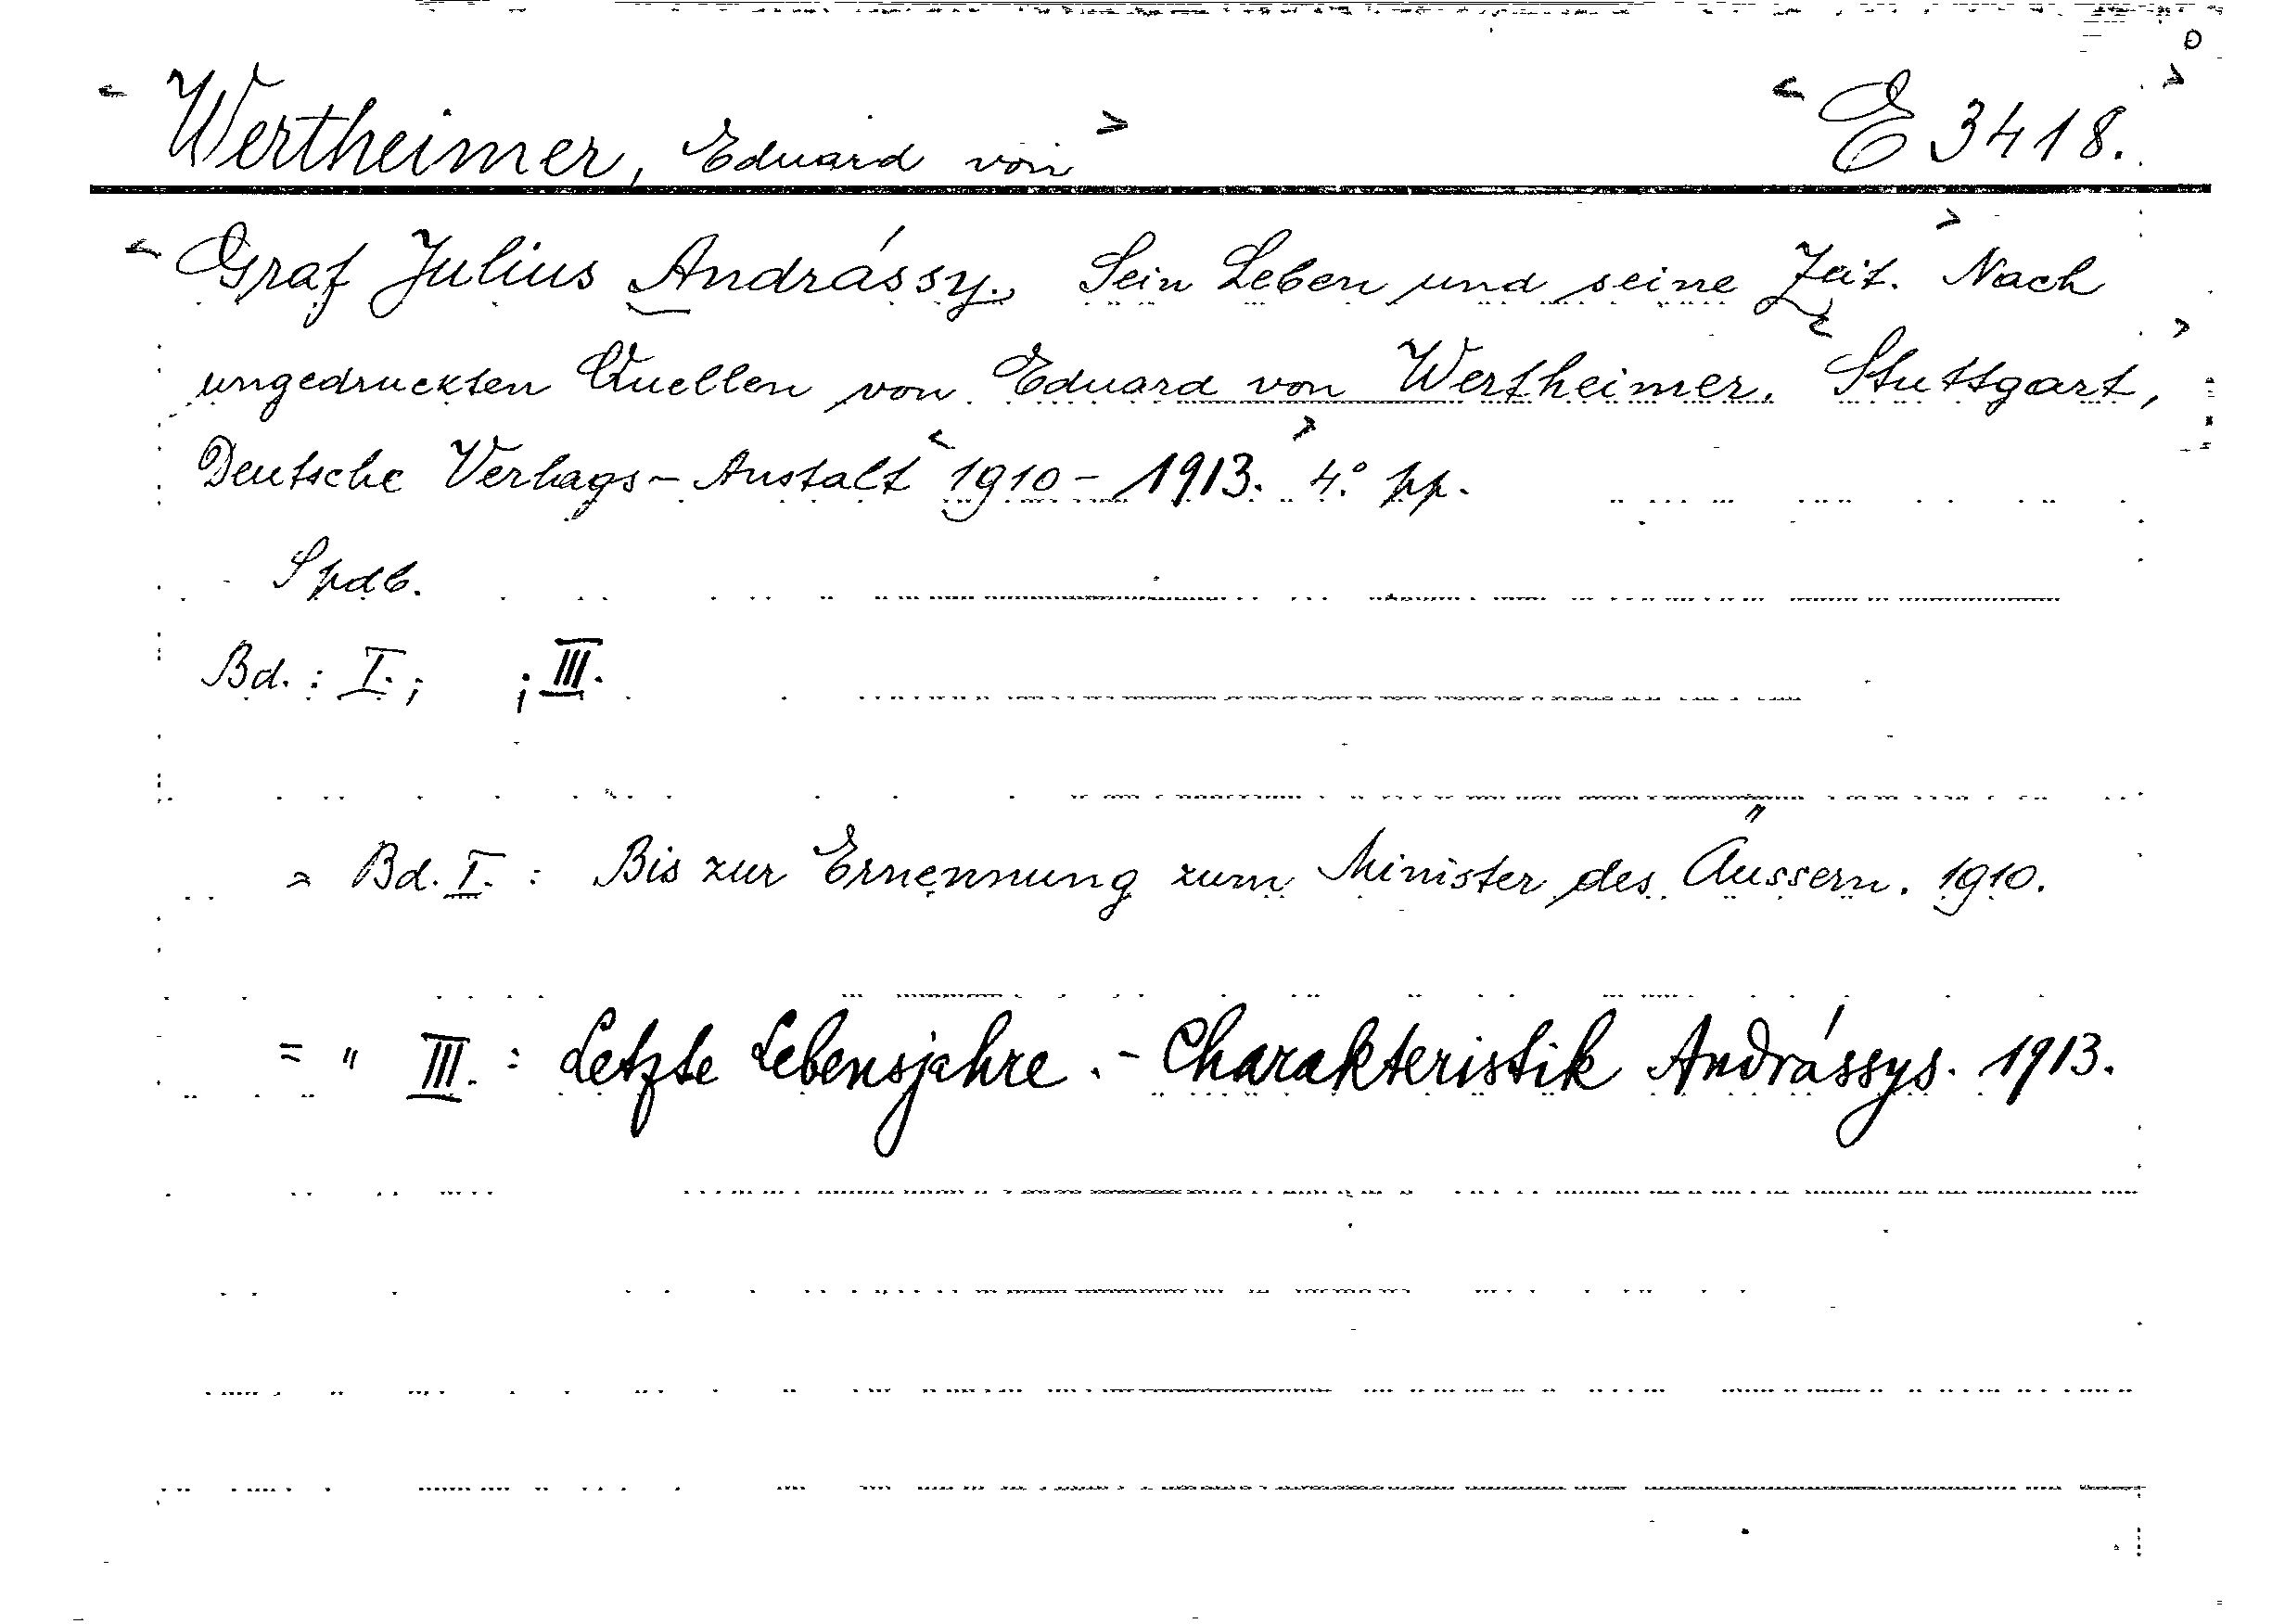 < Wertheimer, Eduard von > < E 3418. >
< Graf Julius Andrássy. Sein Leben und seine Zeit. > Nach
ungedruckten Quellen von Eduard von Wertheimer. < Stuttgart, >
Deutsche Verlags-Anstalt < 1910-1913. > 4.° pp.
Spdb.
Bd.: I.; ; III.
= Bd. I. : Bis zur Ernennung zum Minister des Äussern. 1910.
= " III. : Letzte Lebensjahre. - Charakteristik Andrássys. 1913.